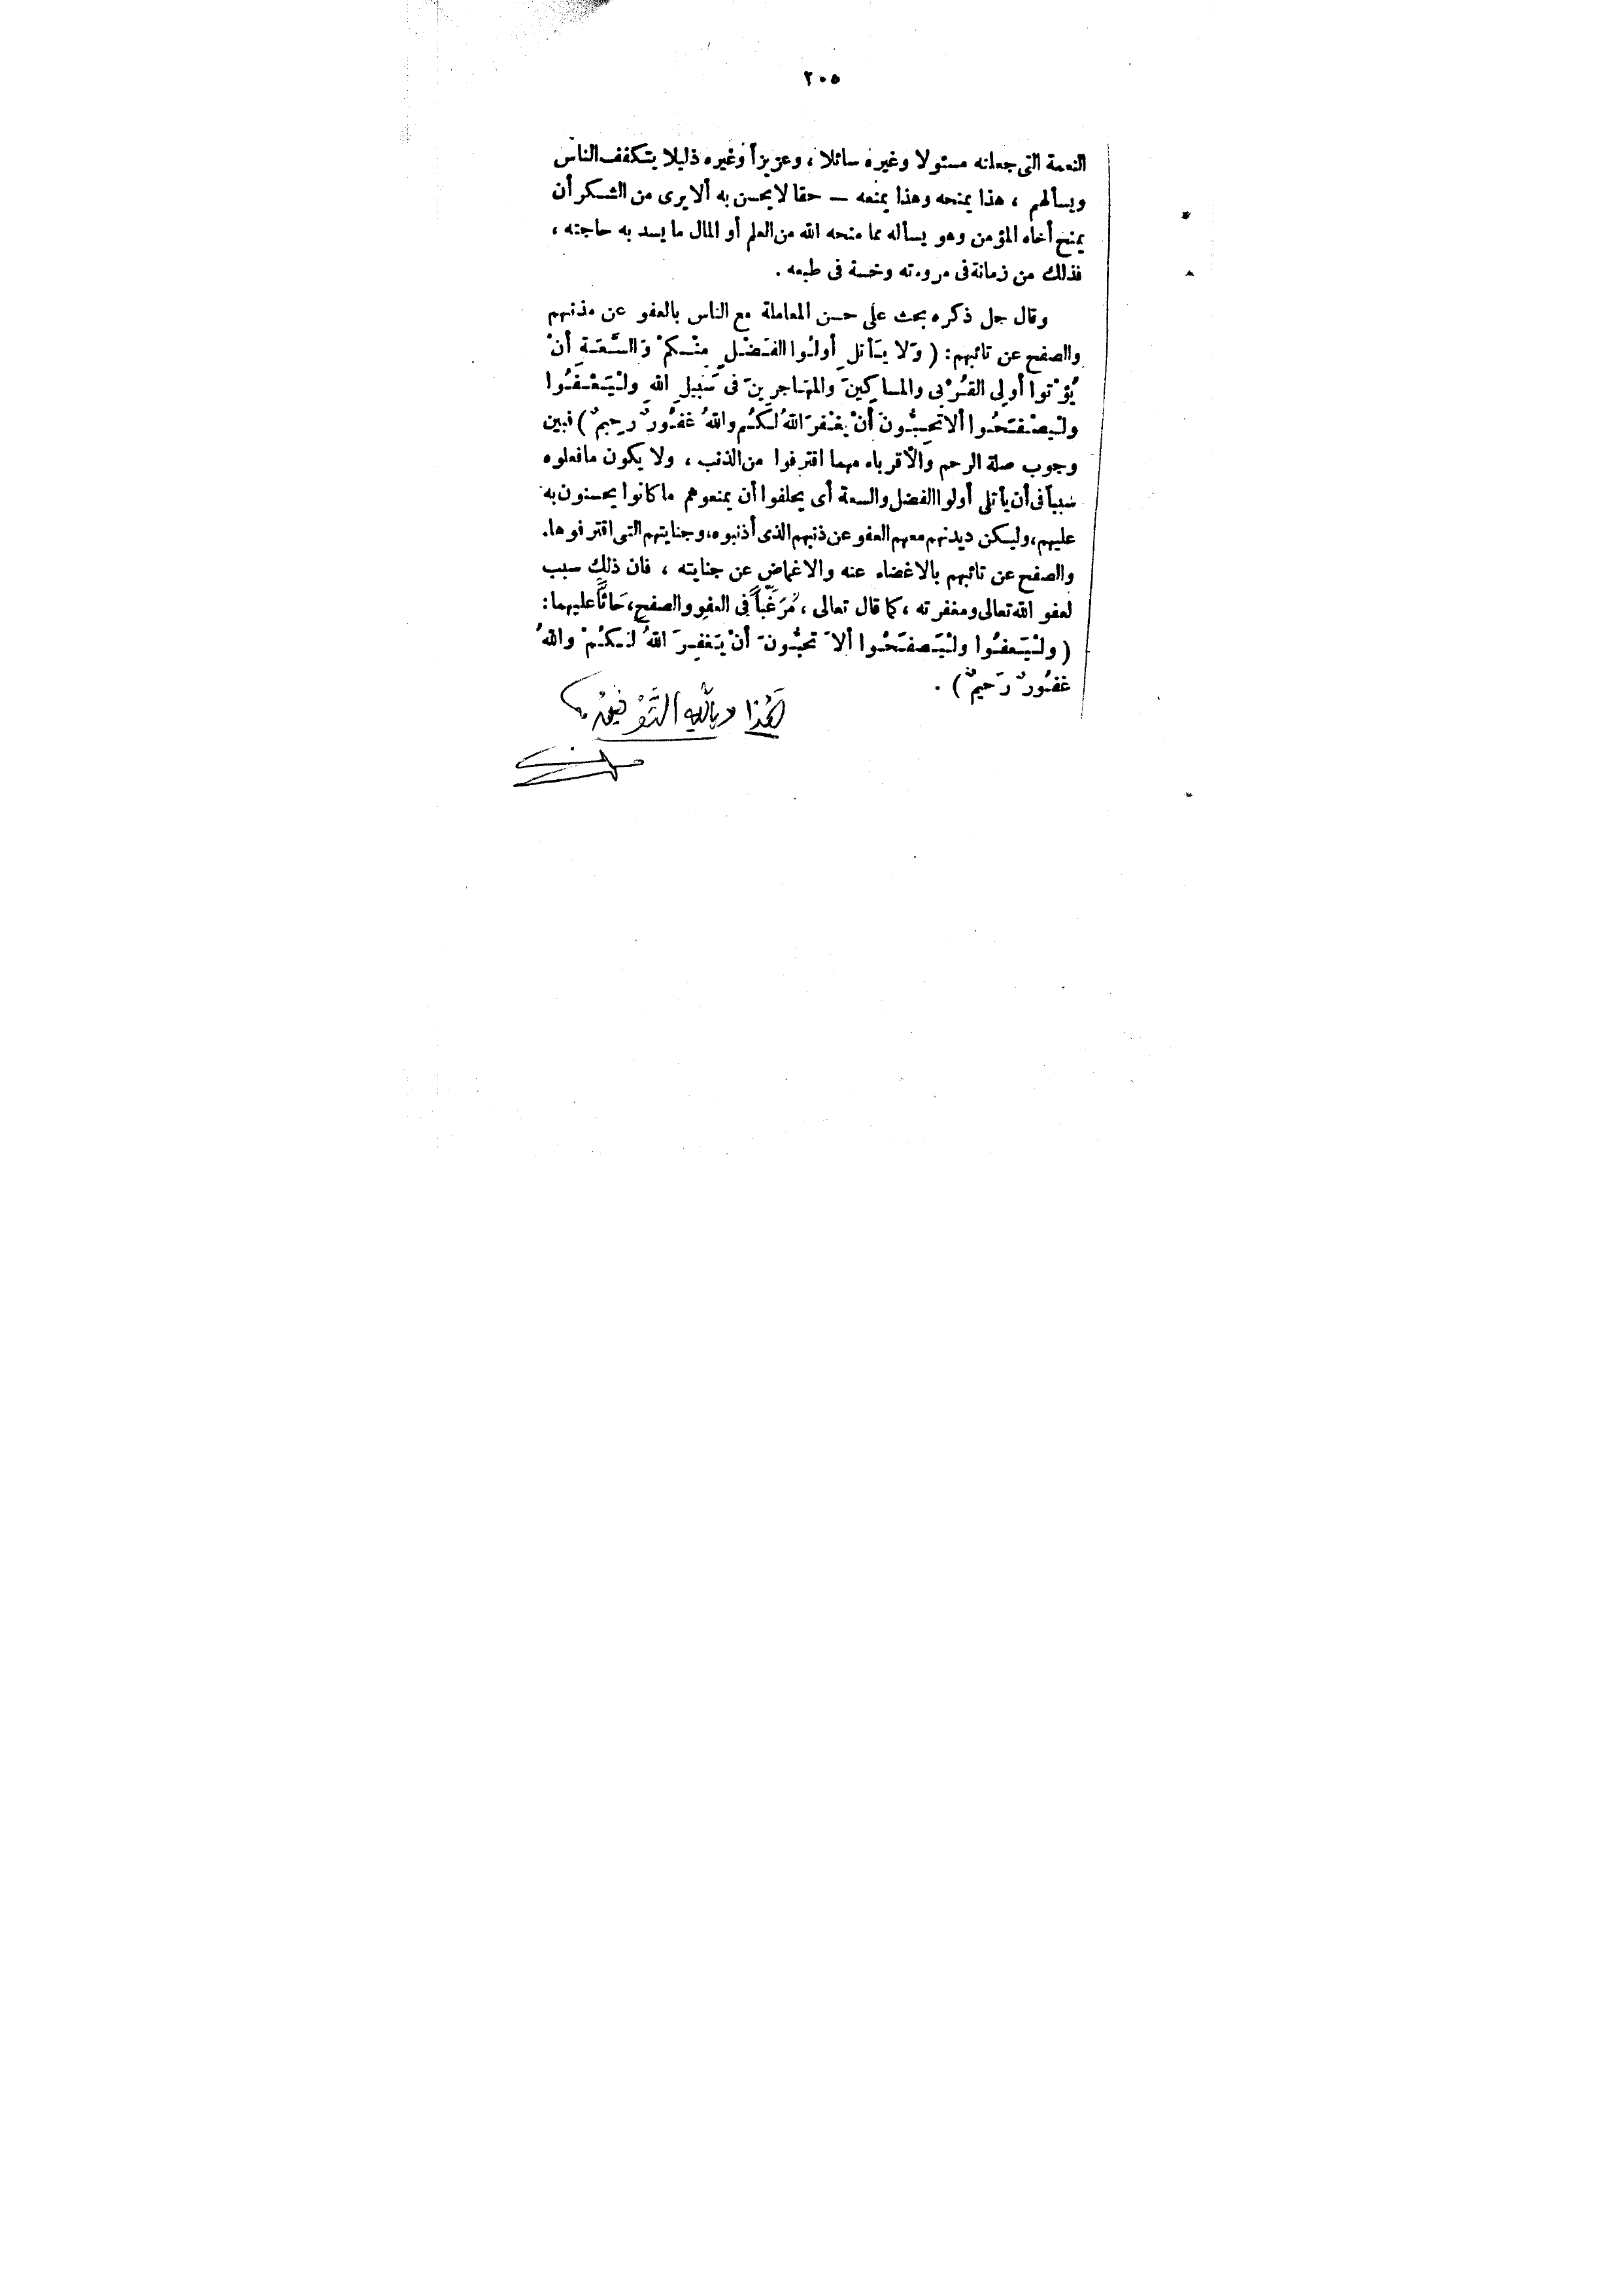 ٢٠٥
النعمة التى جعلته مسئولا وغيره سائلا ، وعزيزاً وغيره ذليلا يتكفف الناس
ويسألهم ، هذا يمنحه وهذا يمنعه — حقا لا يحسن به ألا يرى من الشكر أن
يمنح أخاه المؤمن وهو يسأله مما منحه الله من العلم أو المال ما يسد به حاجته ،
فذلك من زمانة فى مروءته وخسة فى طبعه .
وقال جل ذكره يحث على حسن المعاملة مع الناس بالعفو عن مذنبهم
والصفح عن تائبهم : ( وَلا يَأتلِ أولُوا الفَضْلِ مِنْكمْ وَالسَّعَةِ أنْ
يُؤْتوا أولِى القُرْبى والمساكِينَ والمهَاجرِينَ فى سَبيلِ اللهِ ولْيَعْفُوا
ولْيصْفَحُوا ألا تحِبُّونَ أنْ يغْفرَ اللهُ لَكُم واللهُ غفُورٌ رحِيمٌ ) فبين
وجوب صلة الرحم والأقرباء مهما اقترفوا من الذنب ، ولا يكون ما فعلوه
سبباً فى أن يأتلى أولوا الفضل والسعة أى يحلفوا أن يمنعوهم ما كانوا يحسنون به
عليهم ، وليكن ديدنهم معهم العفو عن ذنبهم الذى أذنبوه ، وجنايتهم التى اقترفوها .
والصفح عن تائبهم بالاغضاء عنه والاغماض عن جنايته ، فان ذلك سبب
لعفو الله تعالى ومغفرته ، كما قال تعالى ، مُرَغِّباً فى العفو والصفح ، حَاثّاً عليهما :
( ولْيَعفُوا ولْيَصفَحُوا ألاَ تحبُّونَ أنْ يَغفِرَ اللهُ لَكُمْ واللهُ
غفُورٌ رَحيمٌ ) .
هٰذا وبالله التَّوْفيق